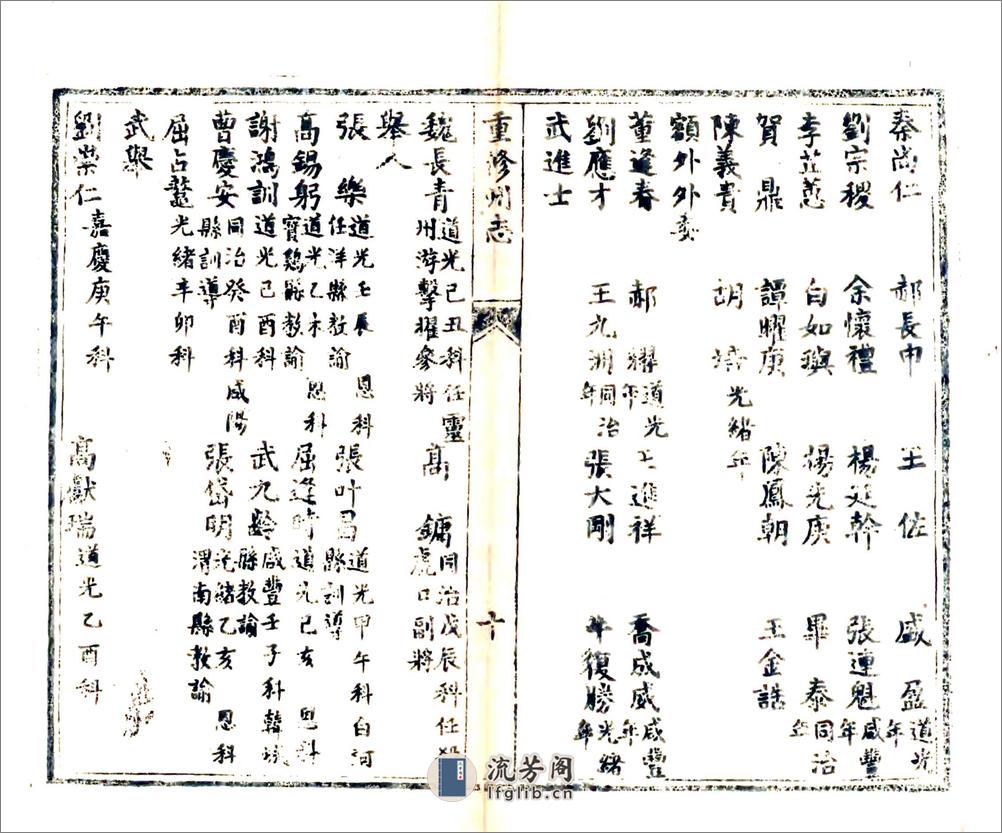 秦尚仁 郝長中 王佐 盛盈道光年
劉宗稷 余懷禮 楊廷幹 張連魁咸豐年
李芷蕙 白如璵 楊光庚 畢泰同治年
賀鼎 譚曜庚 陳鳳朝 王金誥
陳義貴 胡 光緒年
額外外委
董逢春 郝耀道光年 王進祥 喬成威咸豐年
劉應才 王九洲同治年 張大剛 牛復勝光緒年
武進士
重修州志 十
魏長青道光己丑科任靈州游擊擢參將 高鏞同治戊辰科任 虎口副將
舉人
張樂道光壬辰恩科任洋縣教諭 張叶昌道光甲午科白河縣訓導
高錫躬道光乙未恩科寶鷄縣教諭 屈逢時道光己亥恩科
謝鴻訓道光己酉科 武九齡咸豐壬子科韓城縣教諭
曹慶安同治癸酉科咸陽縣訓導 張岱明光緒乙亥恩科渭南縣教諭
屈占鼇光緒辛卯科
武舉
劉榮仁嘉慶庚午科 高獻瑞道光乙酉科
流芳阁
lfglib.cn